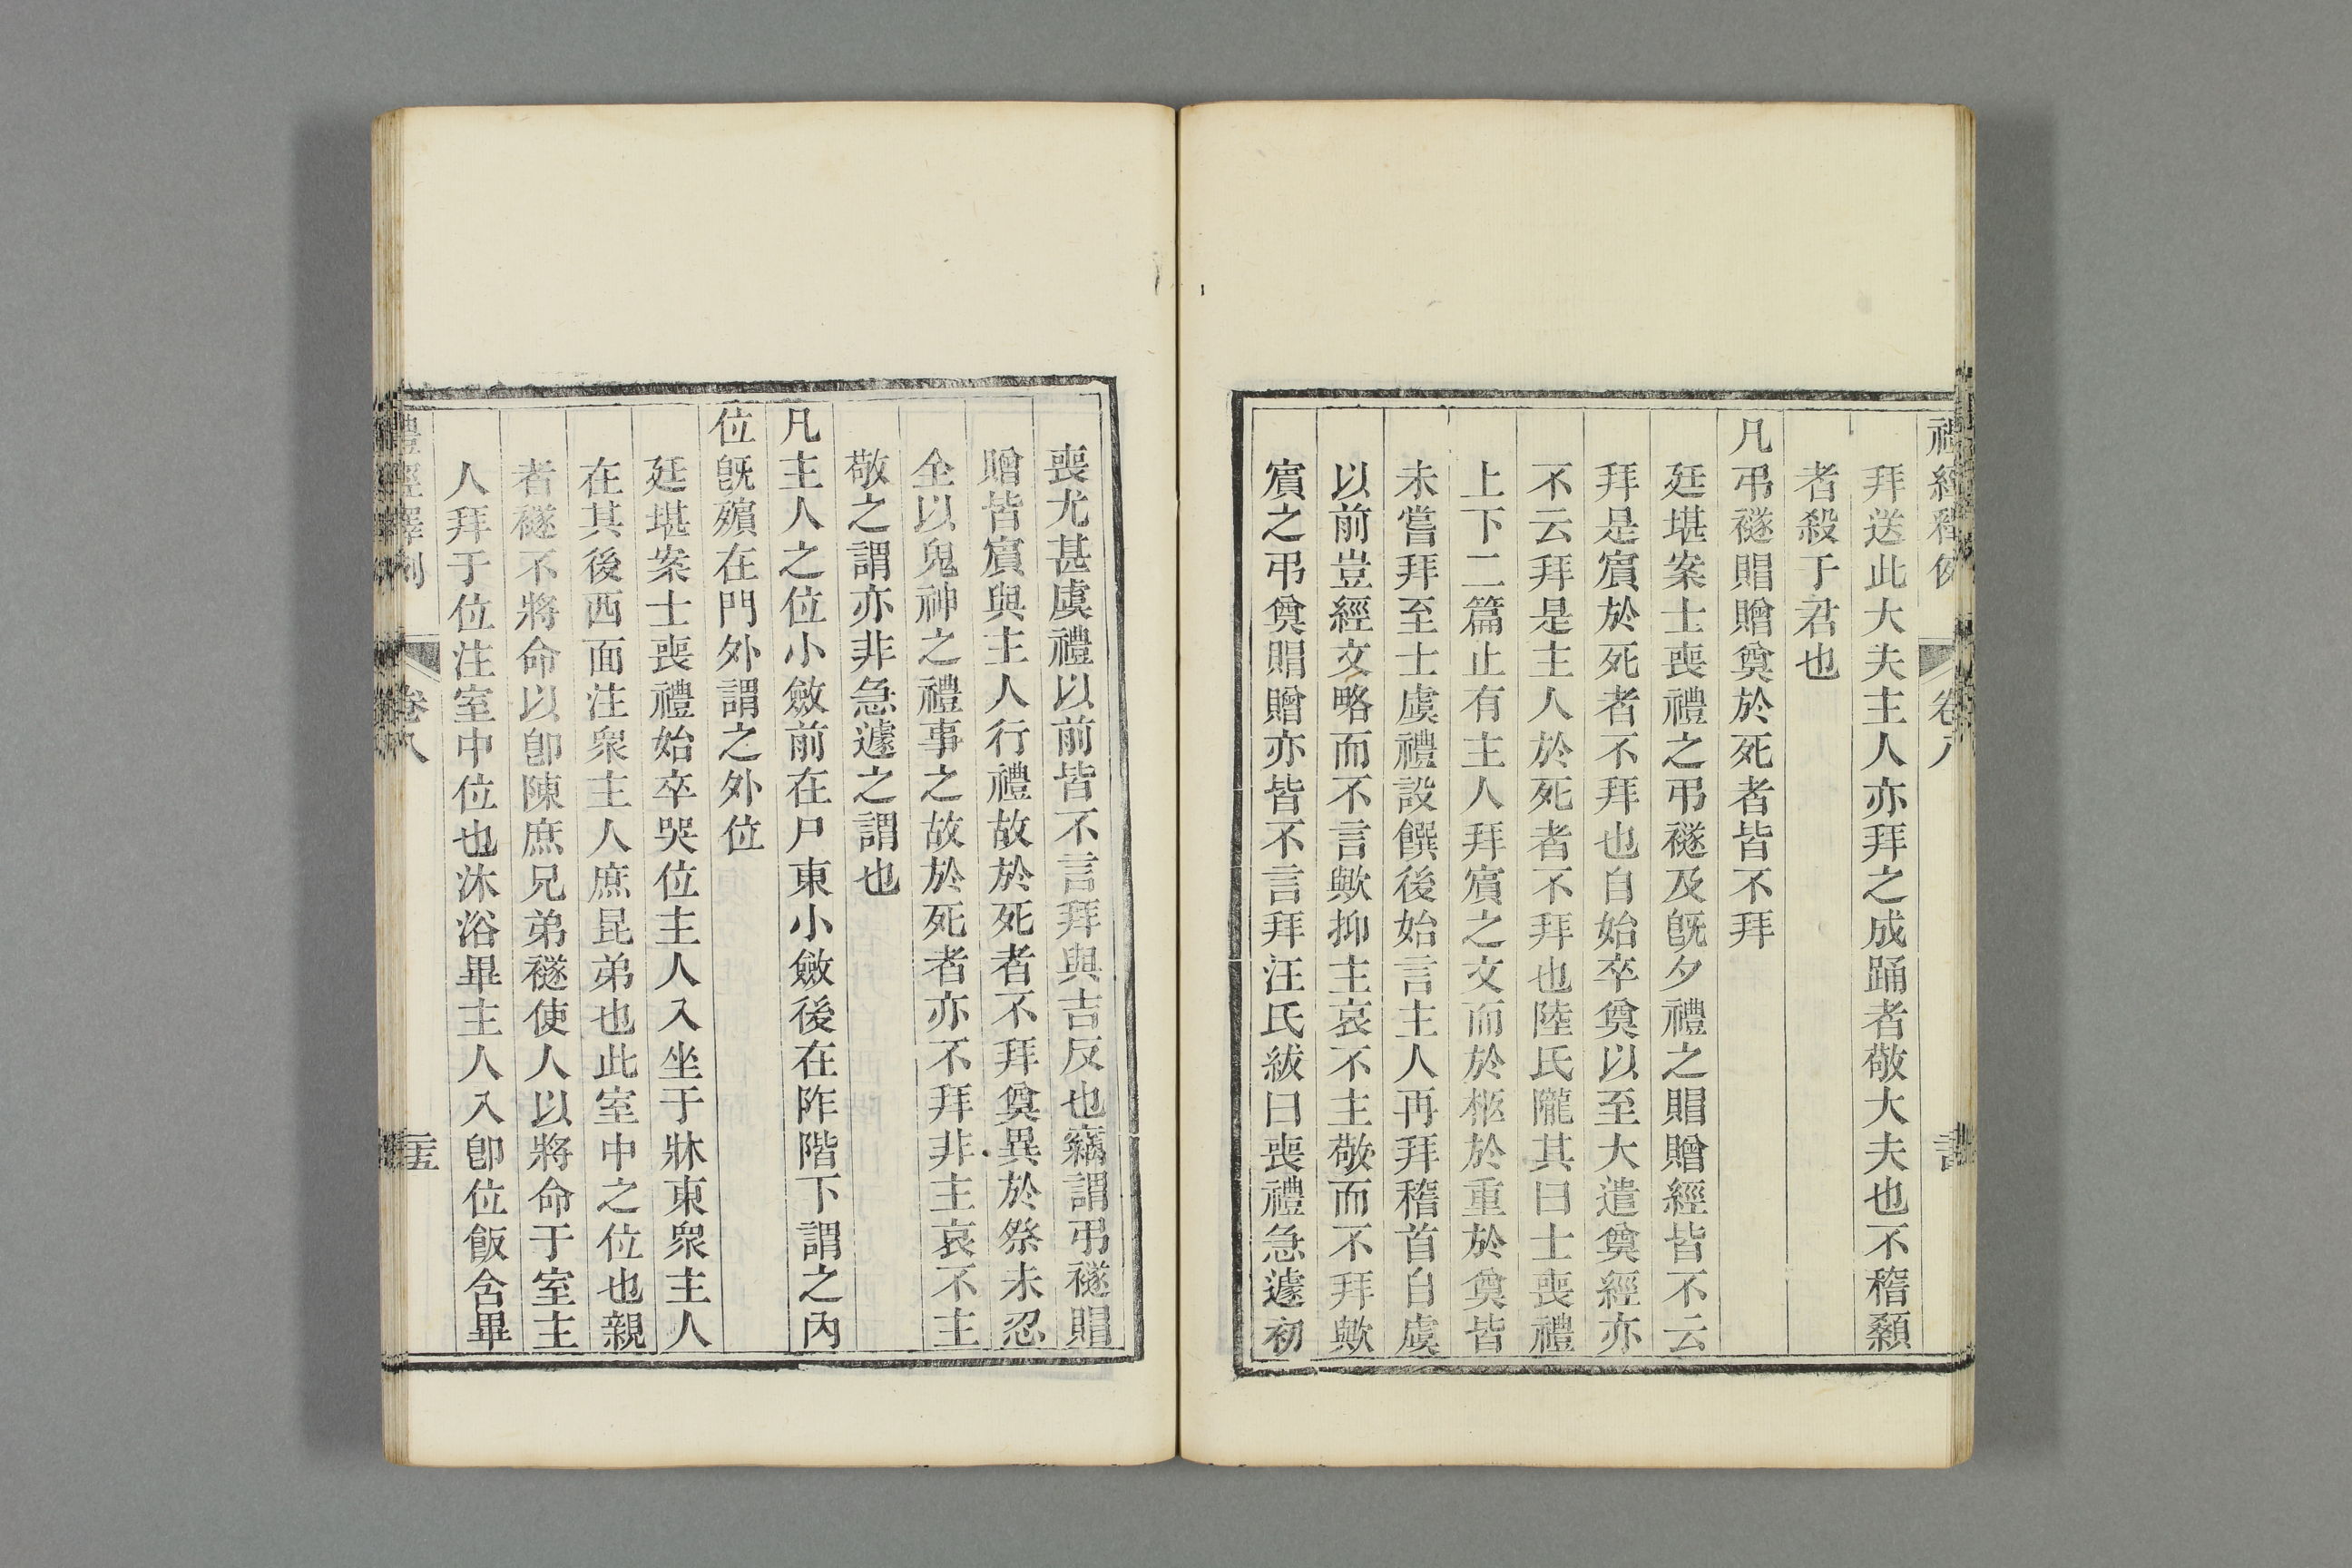 禮經釋例 卷八
拜送此大夫主人亦拜之成踊者敬大夫也不稽顙
者殺于君也
凡弔襚賵贈奠於死者皆不拜
廷堪案士喪禮之弔襚及旣夕禮之賵贈經皆不云
拜是賓於死者不拜也自始卒奠以至大遣奠經亦
不云拜是主人於死者不拜也陸氏隴其曰士喪禮
上下二篇止有主人拜賓之文而於柩於重於奠皆
未嘗拜至士虞禮設饌後始言主人再拜稽首自虞
以前豈經文略而不言歟抑主哀不主敬而不拜歟
賓之弔奠賵贈亦皆不言拜汪氏紱曰喪禮急遽初
喪尤甚虞禮以前皆不言拜與吉反也竊謂弔襚賵
贈皆賓與主人行禮故於死者不拜奠異於祭未忍
全以鬼神之禮事之故於死者亦不拜非主哀不主
敬之謂亦非急遽之謂也
凡主人之位小斂前在尸東小斂後在阼階下謂之內
位旣殯在門外謂之外位
廷堪案士喪禮始卒哭位主人入坐于牀東衆主人
在其後西面注衆主人庶昆弟也此室中之位也親
者襚不將命以卽陳庶兄弟襚使人以將命于室主
人拜于位注室中位也沐浴畢主人入卽位飯含畢
禮經釋例 卷八